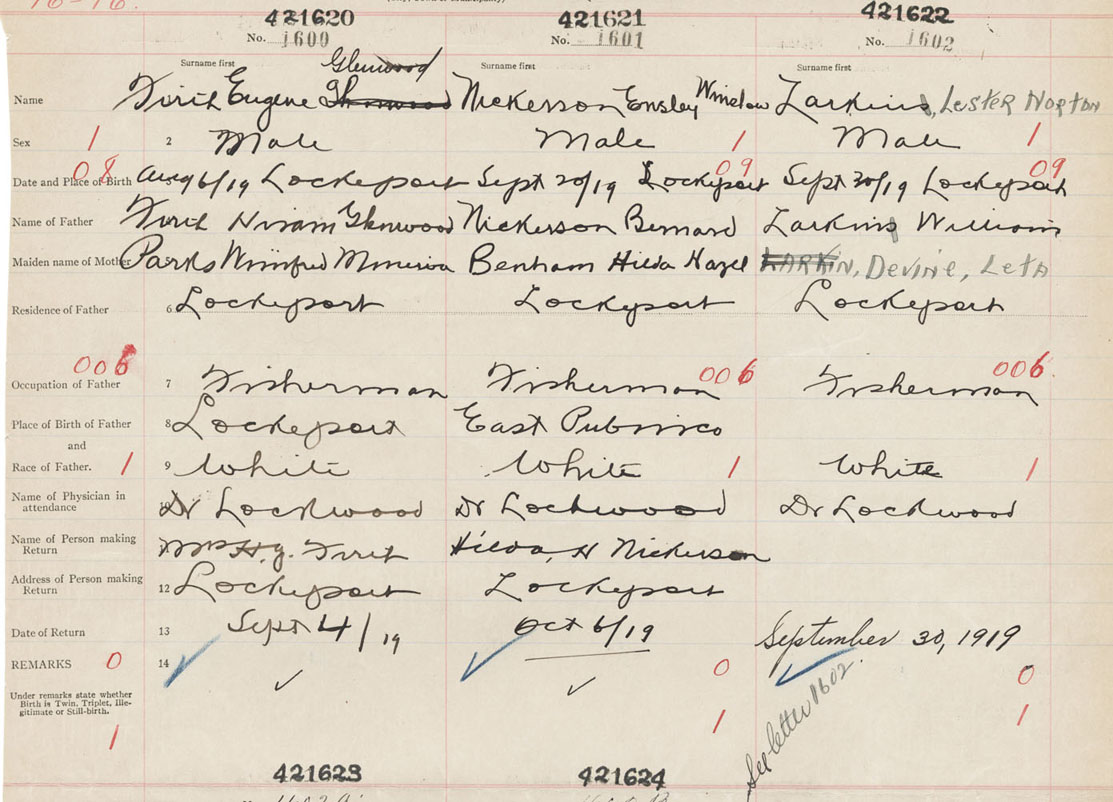 16-16.
421620 421621 421622
No. 1600 No. 1601 No. 1602
Surname first Surname first Surname first
Glenwood
Name Firth Eugene Glenwood Nickerson Ensley Winslow Larkins, Lester Norton
Sex 1 2 Male Male 1 Male 1
08 09 09
Date and Place of Birth Aug 6/19 Lockeport Sept 20/19 Lockeport Sept 20/19 Lockeport
Name of Father Firth Hiram Glenwood Nickerson Bernard Larkins William
Maiden name of Mother Parks Winifred Minerva Benham Hilda Hazel LARKIN, Devine, Leta
Residence of Father 6 Lockeport Lockeport Lockeport
006 006 006
Occupation of Father 7 Fisherman Fisherman Fisherman
Place of Birth of Father 8 Lockeport East Pubnico
and
Race of Father. 1 9 White White 1 White 1
Name of Physician in
attendance Dr Lockwood Dr Lockwood Dr Lockwood
Name of Person making
Return Mrs H. G. Firth Hilda, H Nickerson
Address of Person making
Return 12 Lockeport Lockeport
Date of Return 13 Sept 4/19 Oct 6/19 September 30, 1919
REMARKS 0 14 0 0
Under remarks state whether
Birth is Twin, Triplet, Ille-
gitimate or Still-birth.
1 1 1
See letter 1602
421623 421624